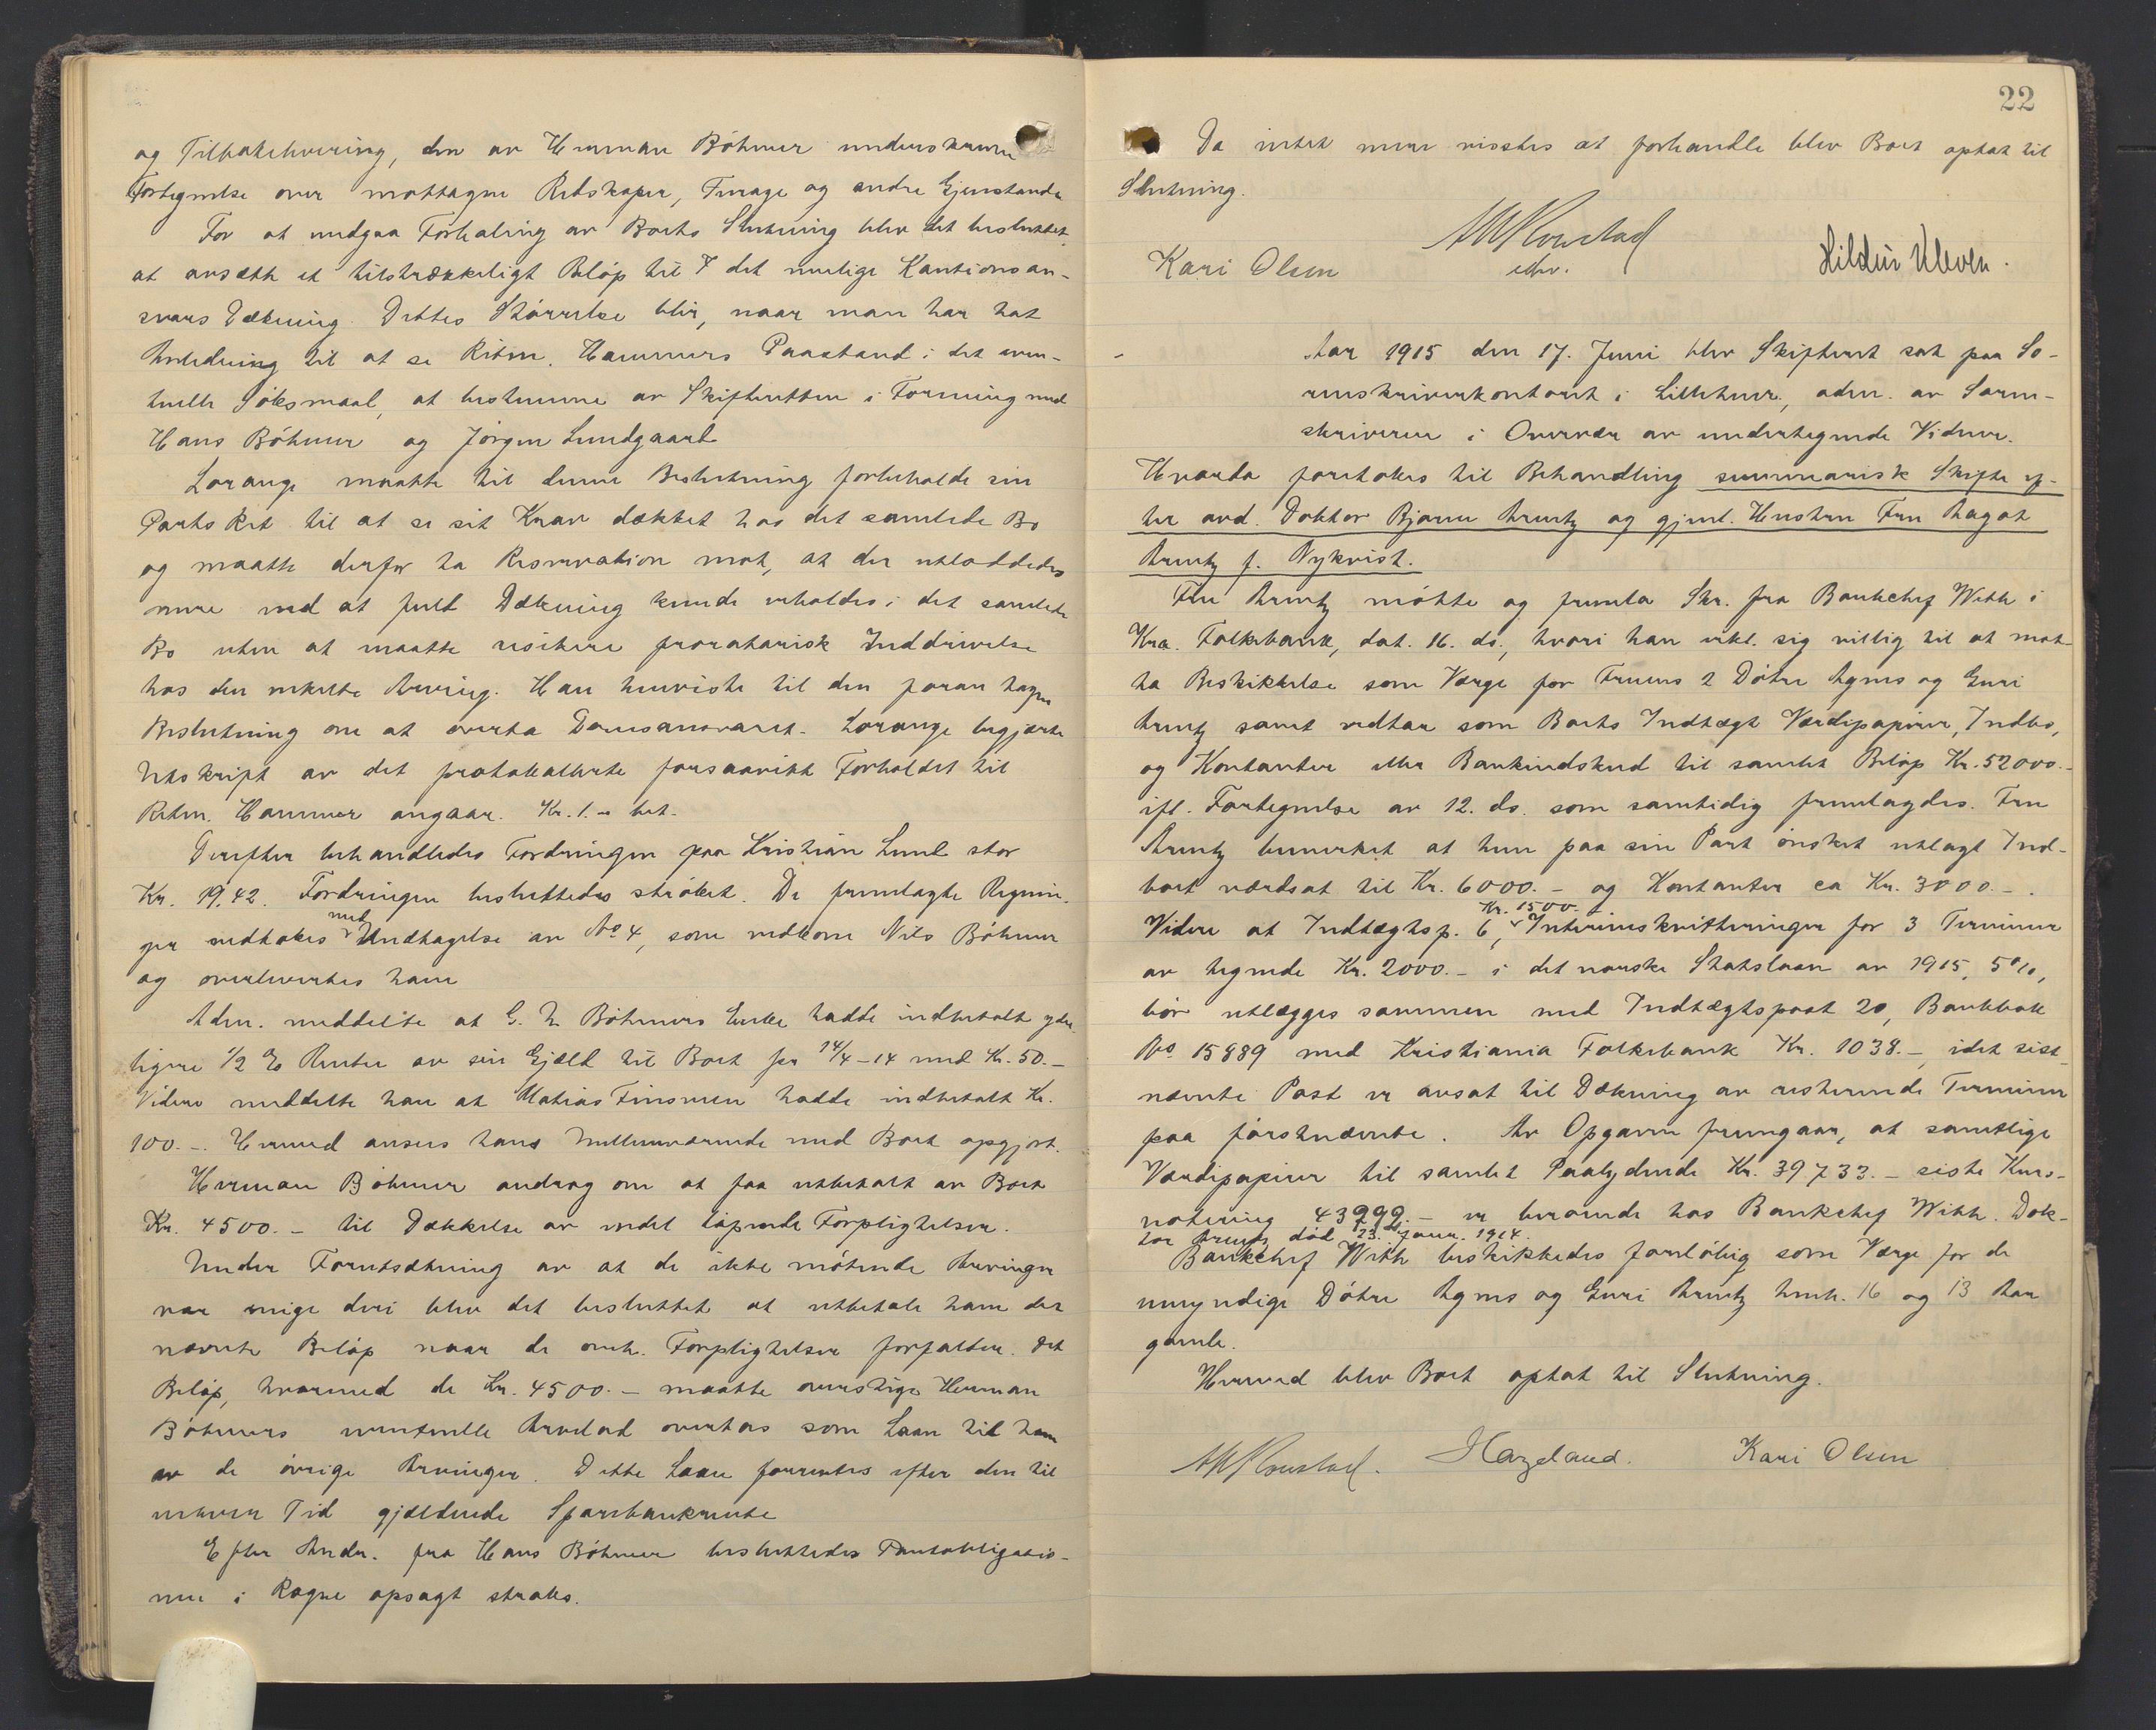 og Tilbakelevering, den av Herman Böhmer underskrevne
Fortegnelse over mottagne Redskaper, Furage og andre Gjenstande
For at undgaa Forhaling av Boets Slutning blev det besluttet
at avsætte et tilstrækkeligt Beløp til F det mulige Kautionsan-
svars Dækning. Dettes Størrelse blir, naar man har hat
Anledning til at se Ritm. Hammers Paastand i det even-
tuelle Søksmaal, at bestemme av Skifteretten i Forening med
Hans Böhmer og Jørgen Lundgaard
Lorange maatte til denne Beslutning forbeholde sin
Parts Ret til at se sit Krav dækket hos det samlede Bo
og maatte derfor ta Reservation mot, at der utloddedes
mere end at fuld Dækning kunde erholdes i det samlede
Bo uten at maatte risikere proratarisk Inddrivelse
hos den enkelte Arving. Han henviste til den foran tagne
Beslutning om at overta Domsansvaret. Lorange begjærte
Utskript av det protokollerte forsaavidt Forholdet til
Ritm. Hammer angaar. Kr. 1.- bet.
Derefter behandledes Fordringen paa Kristian Lund stor
Kr. 19,42. Fordringen besluttedes strøket. De fremlagte Regnin-
ger vedtokes med Undtagelse av No 4, som vedkom Nils Böhmer
og overlevertes ham
Adm. meddelte at G. N Böhmers Enke hadde indbetalt yder-
ligere 1/2 Renter av sin Gjæld til Boet pr 14/4-14 med Kr. 50.-
Videre meddelte han at Matias Finsveen hadde indbetalt Kr.
100.-. Hermed ansees hans Mellemværende med Boet opgjort.
Herman Böhmer androg om at faa utbetalt av Boet
Kr. 4500.- til Dækkelse av endel løpende Forpligtelser.
Under Forutsætning av at de ikke møtende Arvinger
var enige deri blev det besluttet at utbetale ham det
nævnte Beløp naar de omh. Forpligtelser forfalder. Det
Beløp, hvormed de Kr. 4500.- maatte overstige Herman
Böhmers eventuelle Arvelod overtas som Laan til ham
av de øvrige Arvinger. Dette Laan forrentes efter den til
enhver Tid gjældende Sparebankrente
Efter Andr. fra Hans Böhmer besluttedes Pantobligatio-
nen i Rogne opsagt straks.
22
Da intet mere visstes at forhandle blev Boet optat til
Slutning.
Kari Olsen
Hildur Kleven.
Aar 1915 den 17. Juni blev Skifteret sat paa So-
renskriverkontoret i Lillehmr, adm. av Soren-
skriveren i Overvær av undertegnede Vidner.
Hvorda foretokes til Behandling summarisk Skifte ef-
ter avd. Doktor Bjarne Arentz og gjenl. Hustru Fru Aagot
Arentz f. Nykvist.
Fru Arentz møtte og fremla Skr. fra Bankchef With i
Kra. Folkebank, dat. 16. ds., hvori han erkl. sig villig til at mot-
ta Beskikkelse som Værge for Fruens 2 Døtre Agnes og Guri
Arentz samt vedtar som Boets Indtægt Værdipapirer, Indbo,
og Kontanter eller Bankindskud til samlet Beløp Kr. 52000.-
ifl. Fortegnelse av 12. ds. som samtidig fremlagdes. Fru
Arentz bemerket at hun paa sin Part ønsket utlagt Ind-
boet værdsat til Kr. 6000.- og Kontanter ca Kr. 3000.-.
Videre at Indtægtsp. 6, Kr. 1500.- Interimskvitteringer for 3 Terminer
av tegnede Kr. 2000.- i det norske Statslaan av 1915, 5%,
bør utlægges sammen med Indtægtspost 20, Bankbok
No 15889 med Kristiania Folkebank Kr. 1038.-, idet sist-
nævnte Post er avsat til Dækning av resterende Terminer
paa førstnævnte. Av Opgaven fremgaar, at samtlige
Værdipapirer til samlet Paalydende Kr. 39733.- siste Kurs-
notering 43999.- er beroende hos Bankchef With. Dok-
tor Arentz død 23. Janr. 1914.
Bankchef With beskikkedes foreløbig som Værge for de
umyndige Døtre Agnes og Guri Arentz henh. 16 og 13 Aar
gamle.
Hermed blev Boet optat til Slutning.
Hazeland.
Kari Olsen